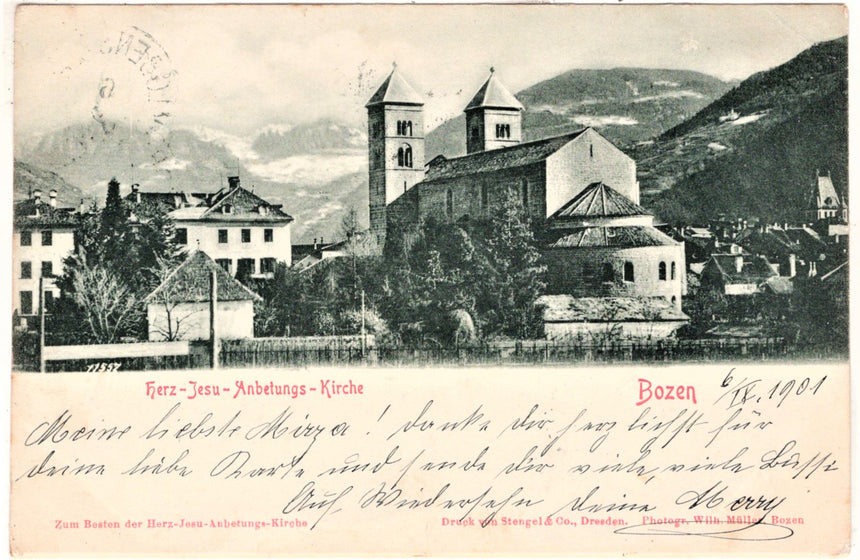 11557
Herz-Jesu-Anbetungs-Kirche
Bozen 6/IX. 1901
Meine liebste Mizza! danke dir herzlichst für
deine liebe Karte und sende dir viele, viele Bussi
Auf Wiedersehn deine Merry
Zum Besten der Herz-Jesu-Anbetungs-Kirche
Druck von Stengel & Co., Dresden. Photogr. Wilh. Müller, Bozen